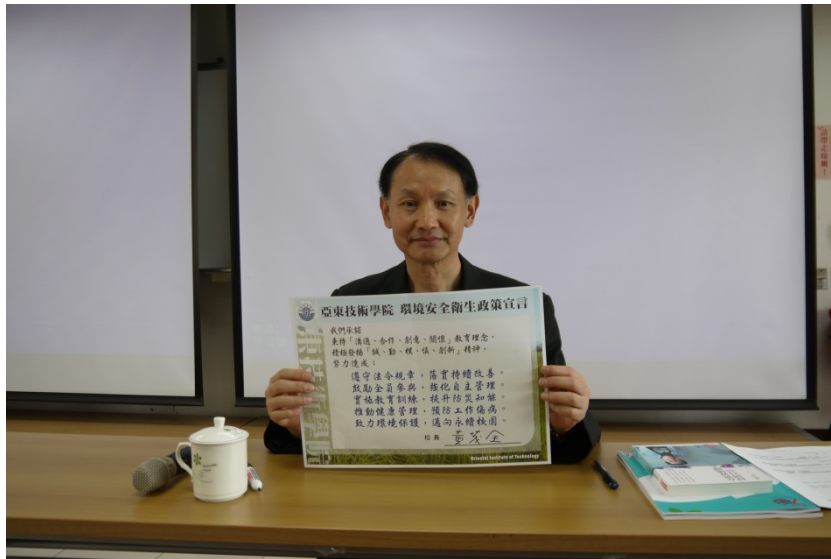 亞東技術學院 環境安全衛生政策宣言
我們承諾
秉持「溝通、合作、創意、關懷」教育理念,
積極發揚「誠、勤、樸、慎、創新」精神。
努力達成:
遵守法令規章,落實持續改善。
鼓勵全員參與,強化自主管理。
實施教育訓練,提升防災知能。
推動健康管理,預防工作傷病。
致力環境保護,邁向永續校園。
校長
Oriental Institute of Technology